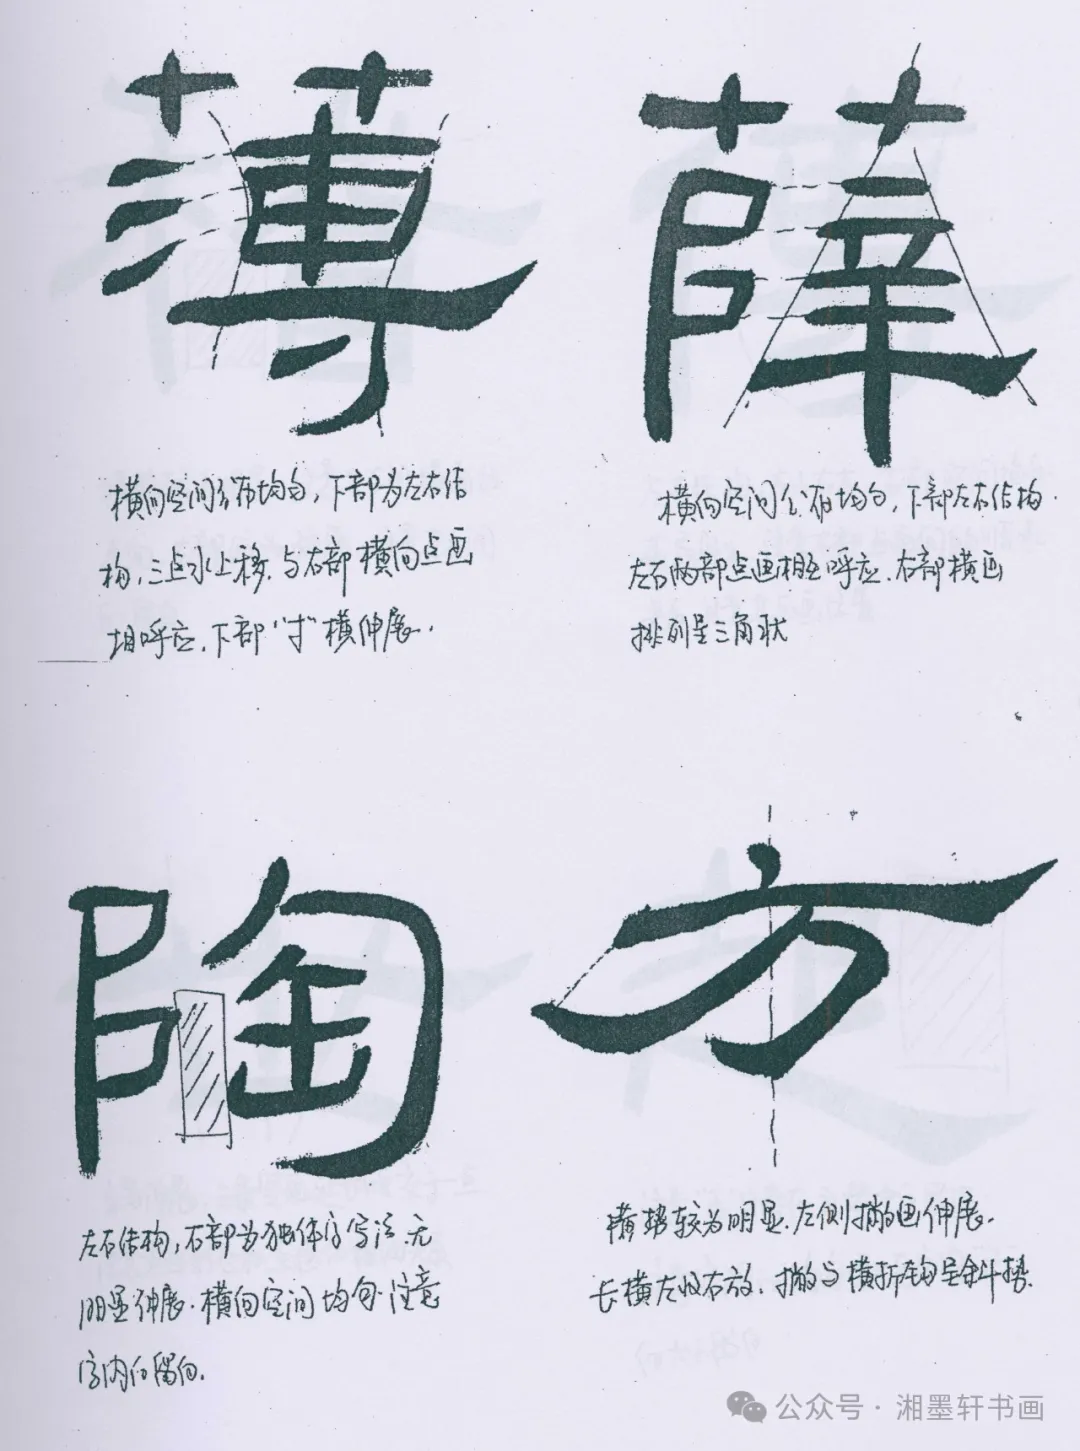 薄
薛
横向空间分布均匀,下部为左右结
构,三点水上移.与右部横向点画
相呼应,下部“寸”横伸展.
横向空间分布均匀,下部左右结构.
左右两部点画相互呼应.右部横画
排列呈三角状
陶
方
左右结构,右部为独体字写法.无
明显伸展.横向空间均匀.注意
字内的留白.
横势较为明显.左侧撇画伸展.
长横左收右放.撇与横折钩呈斜势.
公众号·湘墨轩书画